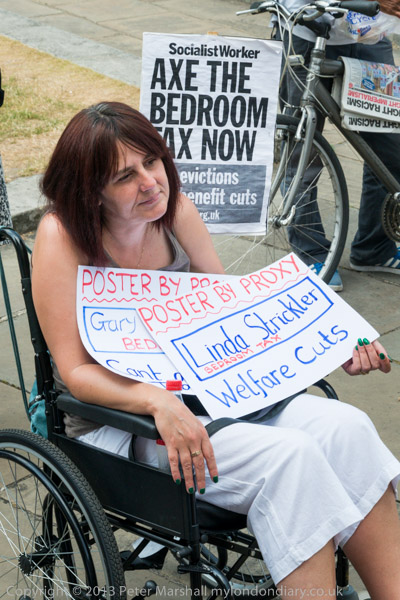 SocialistWorker
AXE THE
BEDROOM
TAX NOW
evictions
benefit cuts
.org.uk
POSTER BY
Gary
BED
Can't
POSTER BY PROXY
Linda Strickler
BEDROOM TAX
Welfare Cuts
FIGHT RACISM!
FIGHT IMPERIALISM!
Copyright © 2013 Peter Marshall mylondondiary.co.uk